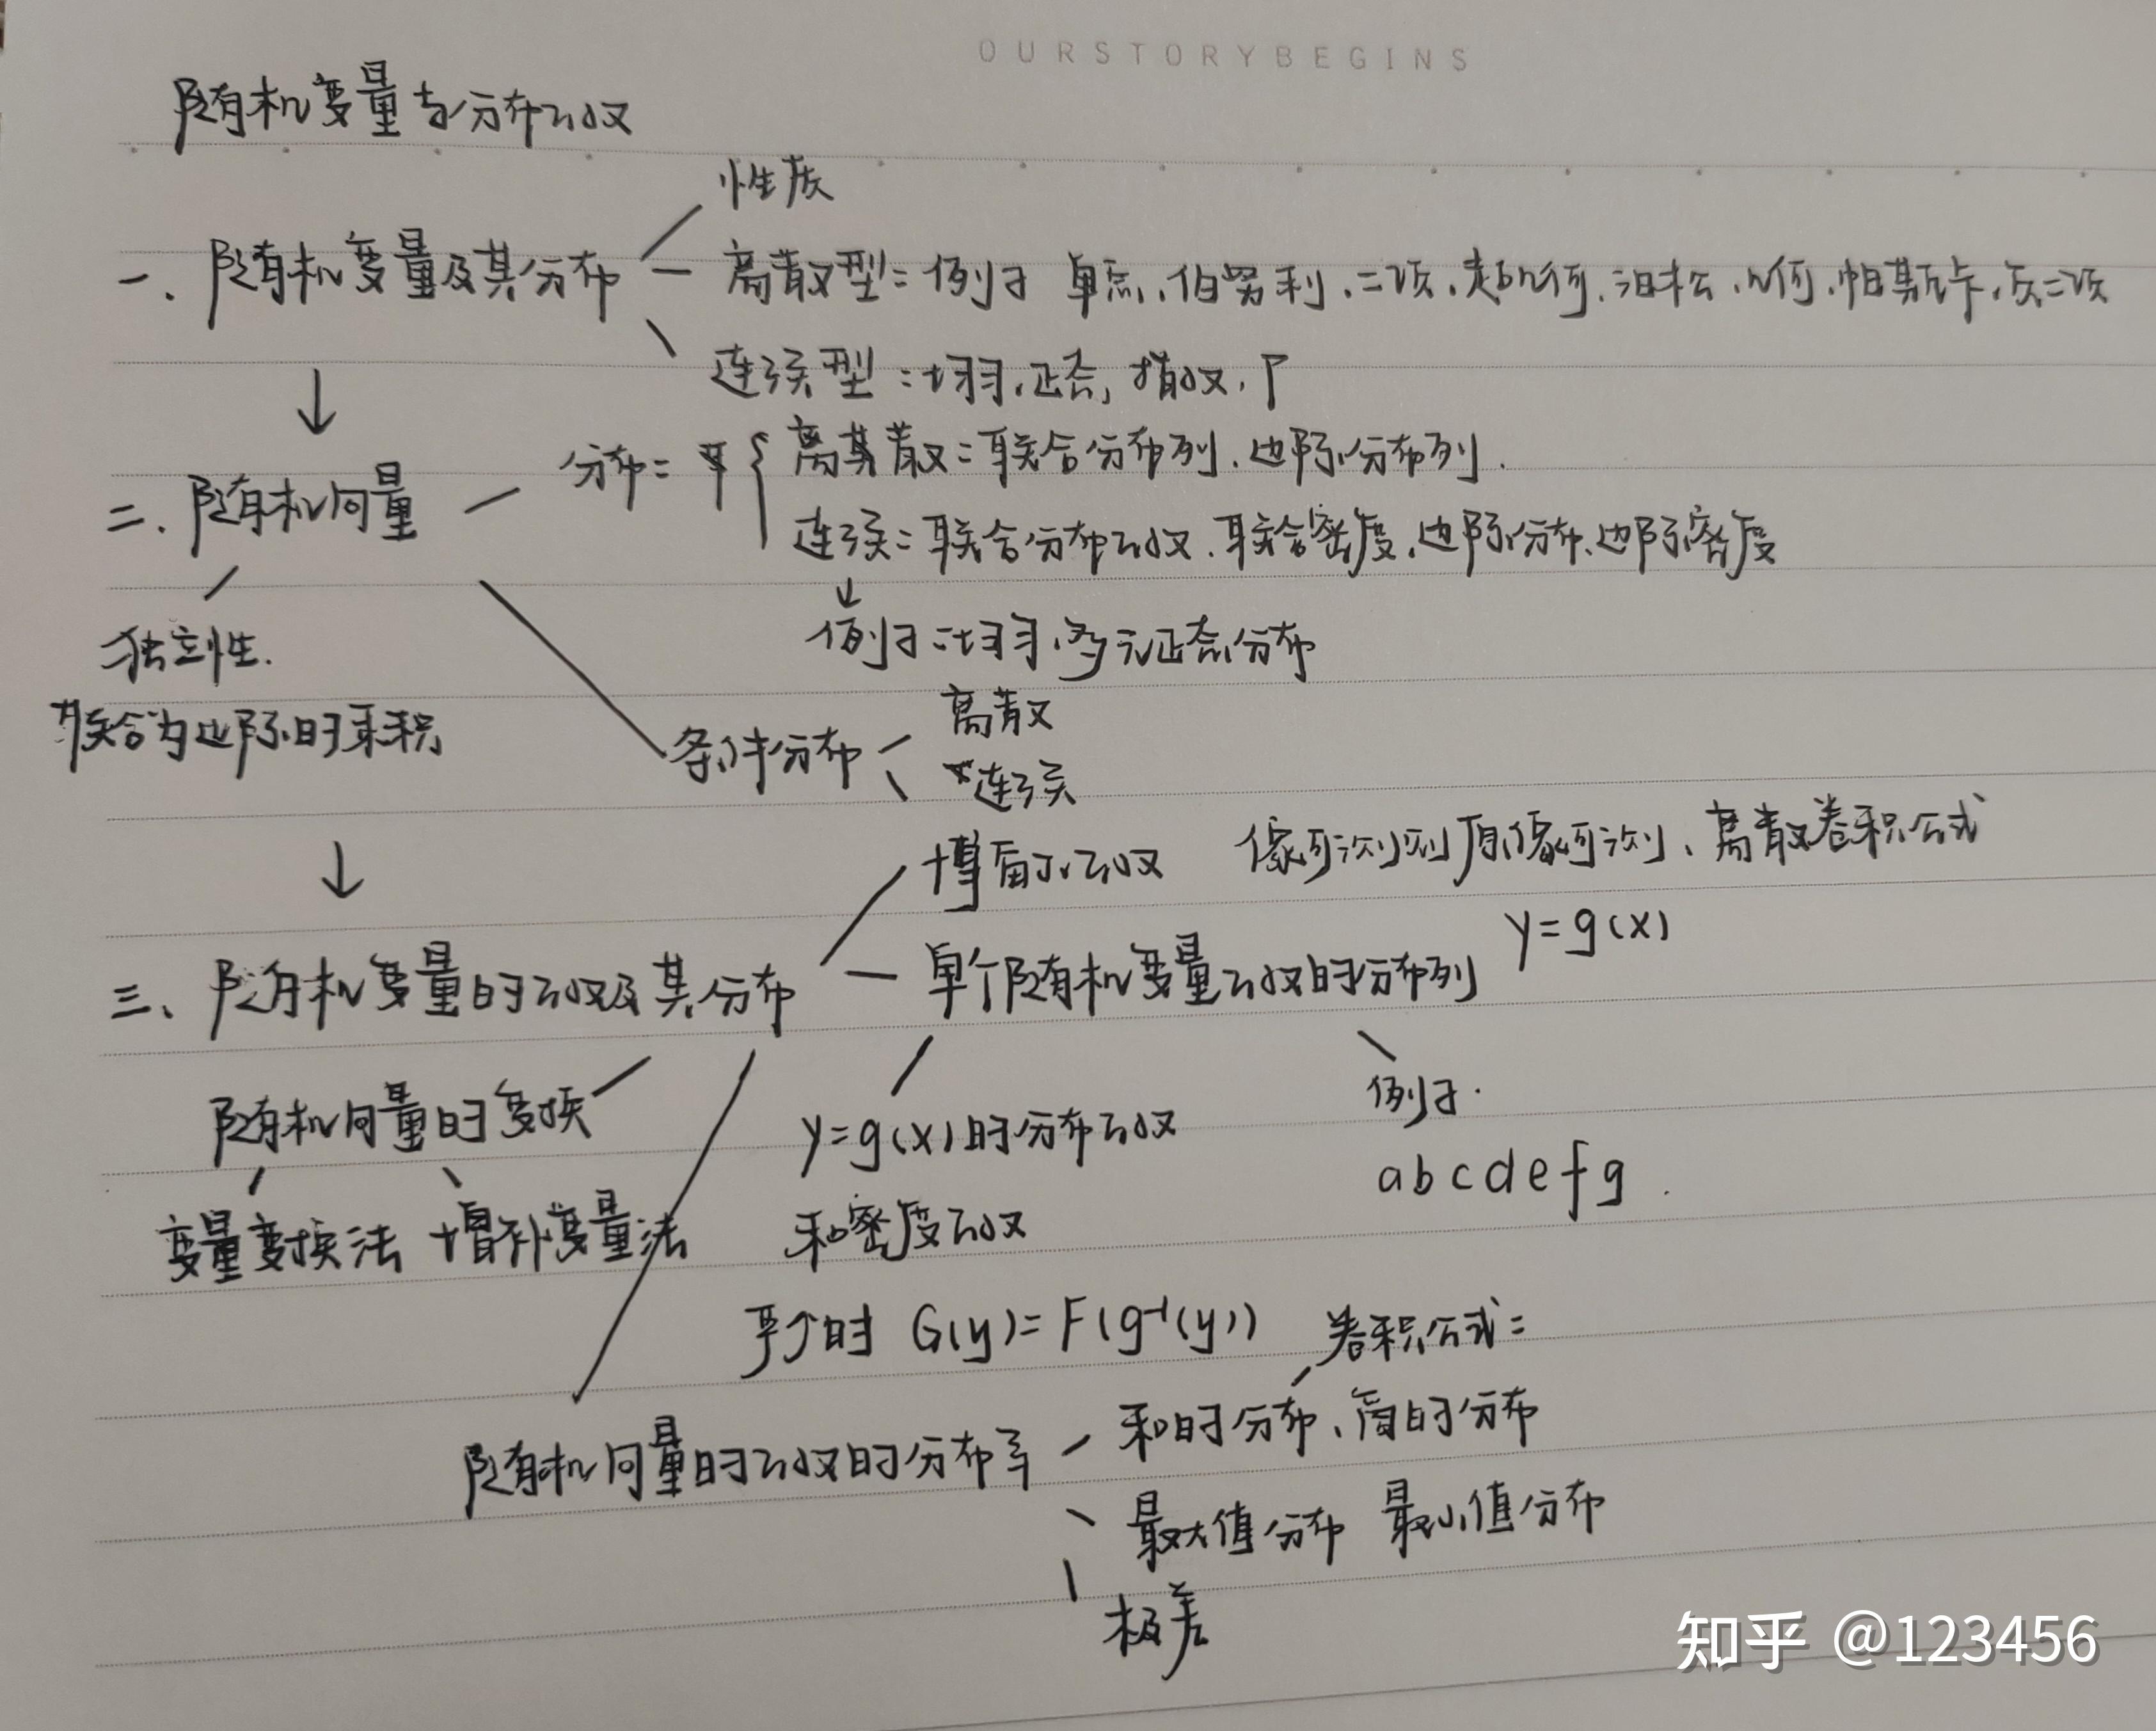 OURSTORYBEGINS
随机变量与分布函数
性质
一、随机变量及其分布
离散型：例子 单点、伯努利、二项、超几何、泊松、几何、帕斯卡、负二项
连续型：均匀、正态、指数、Γ
二、随机向量
分布：
离散：联合分布列、边际分布列.
连续：联合分布函数、联合密度、边际分布、边际密度
例子：均匀、多元正态分布
独立性.
联合为边际的乘积
条件分布
离散
连续
博雷尔函数 像可测则原像可测、离散卷积公式
三、随机变量的函数及其分布
单个随机变量函数的分布列 y=g(x)
随机向量的变换
y=g(x)的分布函数
和密度函数
例子.
abcdefg.
变量变换法 增补变量法
严个时 G(y)=F(g⁻¹(y))
卷积公式：
随机向量的函数的分布
和的分布、商的分布
最大值分布 最小值分布
极差
知乎 @123456